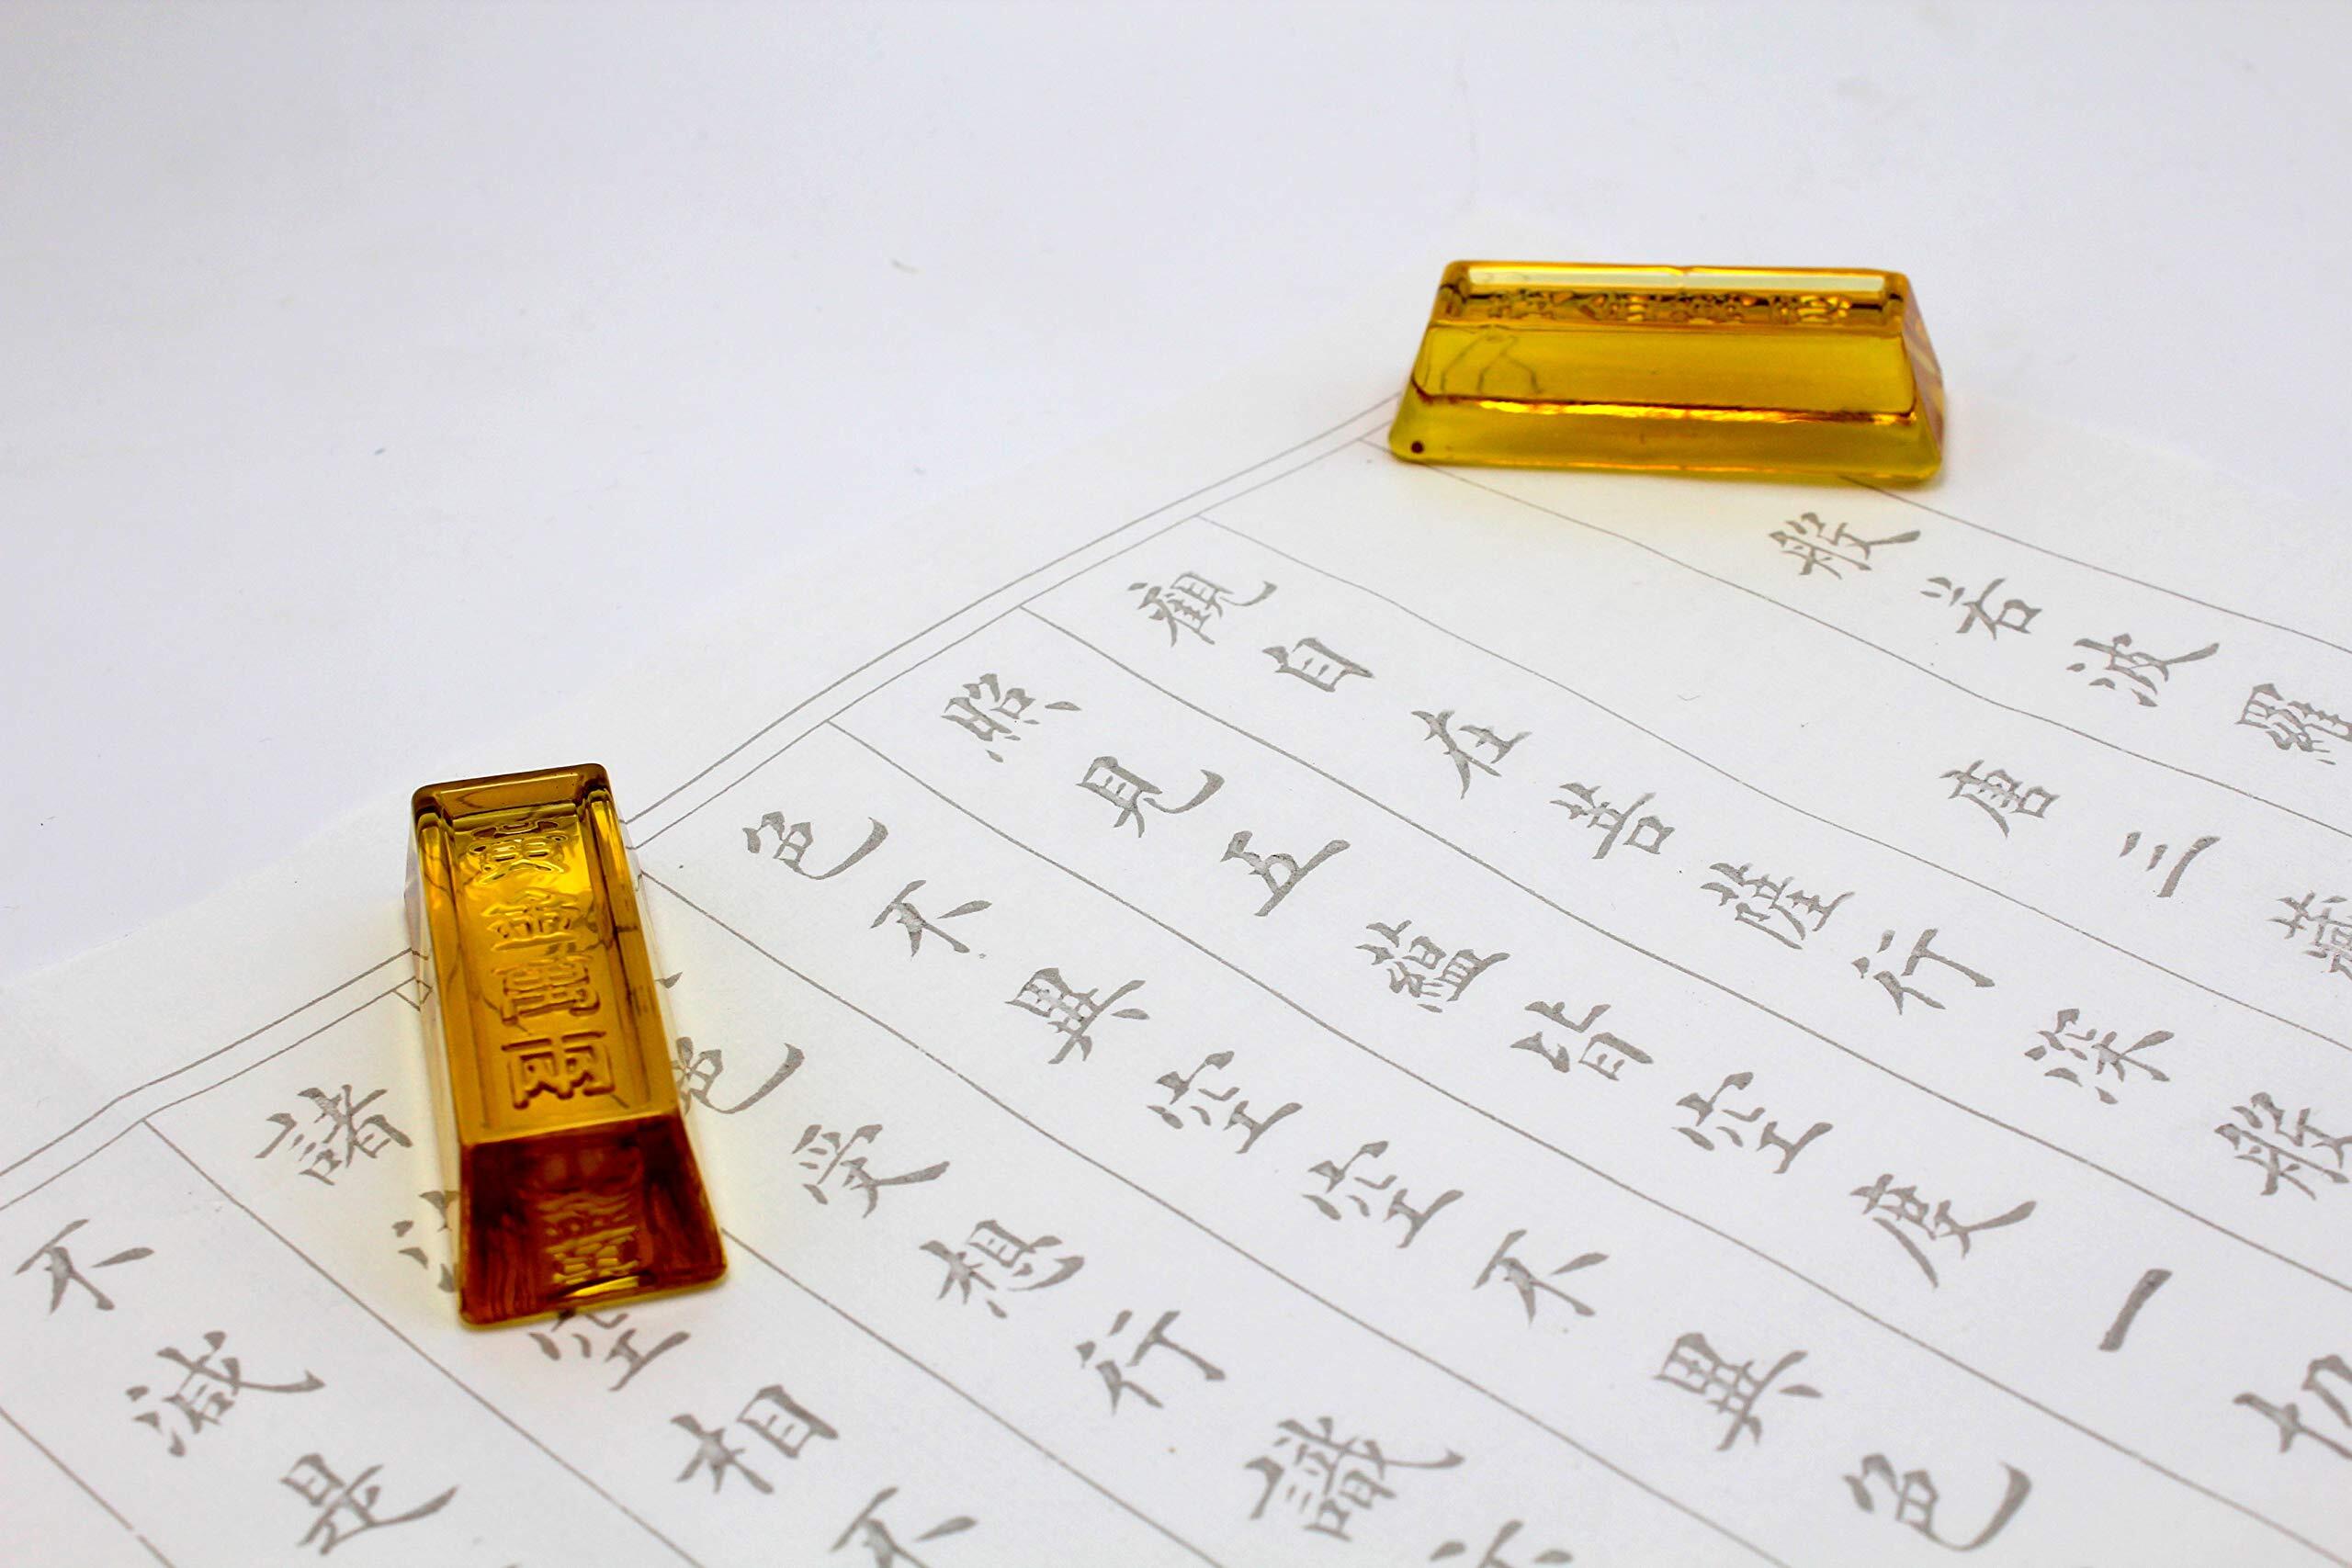 般若波羅
唐三
觀自在菩薩行深般
照見五蘊皆空度一切
色不異空空不異色
色受想行識
諸空相不
不減是
黃金萬兩